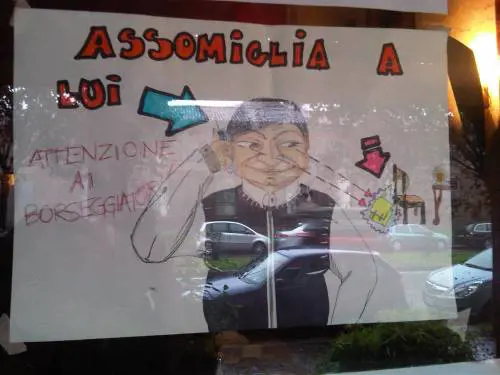 ASSOMIGLIA A
LUI
ATTENZIONE
AI
BORSEGGIATORI